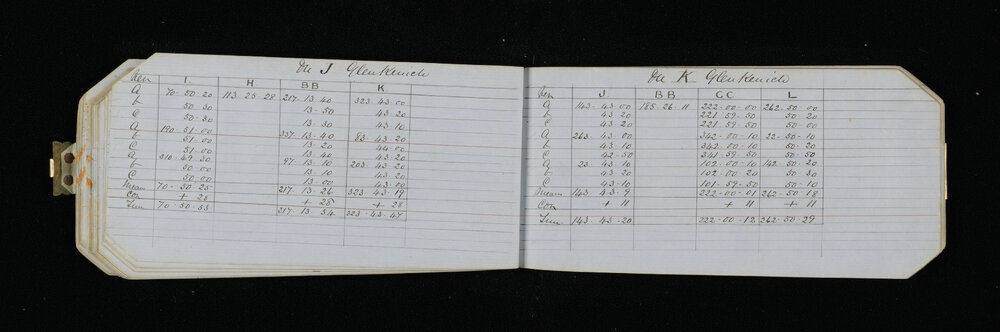 In J Glenkenich
Ver I H BB K
A 70·50·20 113·25·28 217·13·40 323·43·00
b 50·30 13·50 43·20
C 50·30 13·30 43·10
A 190·51·00 337·13·40 83·43·20
b 51·00 13·20 44·00
C 51·00 13·40 43·20
A 310·49·30 97·13·10 203·43·20
b 50·00 13·10 43·20
C 50·00 13·00 43·00
Mean 70·50·25 217·13·26 323·43·19
Con + 28 + 28 + 28
True 70·50·53 217·13·54 323·43·47
In K Glenkenich
Ver J BB CC L
A 143·43·00 185·26·11 222·00·00 262·50·00
b 43·20 221·59·50 50·20
C 43·20 221·59·50 50·00
A 263·43·00 342·00·10 22·50·10
b 43·10 342·00·10 50·20
C 42·50 341·59·50 50·50
A 23·43·10 102·00·10 142·50·20
b 43·20 102·00·20 50·30
C 43·10 101·59·50 50·10
Mean 143·43·9 222·00·01 262·50·18
Con + 11 + 11 + 11
True 143·43·20 222·00·12 262·50·29